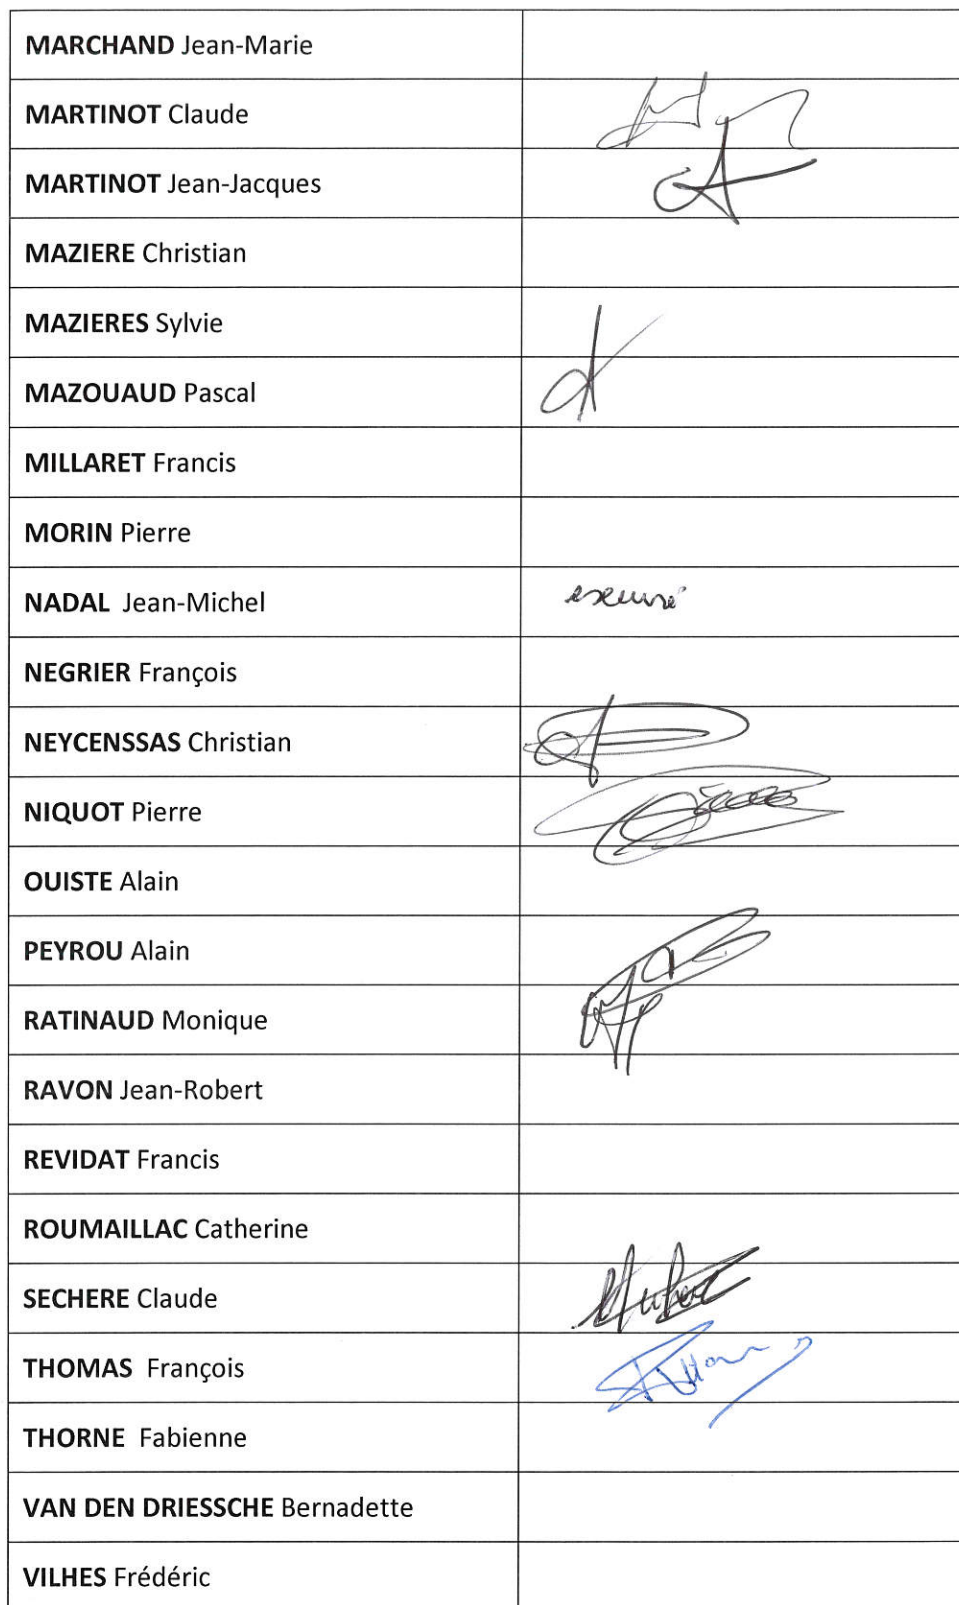 MARCHAND Jean-Marie
MARTINOT Claude
MARTINOT Jean-Jacques
MAZIERE Christian
MAZIERES Sylvie
MAZOUAUD Pascal
MILLARET Francis
MORIN Pierre
NADAL Jean-Michel excusé
NEGRIER François
NEYCENSSAS Christian
NIQUOT Pierre
OUISTE Alain
PEYROU Alain
RATINAUD Monique
RAVON Jean-Robert
REVIDAT Francis
ROUMAILLAC Catherine
SECHERE Claude
THOMAS François
THORNE Fabienne
VAN DEN DRIESSCHE Bernadette
VILHES Frédéric